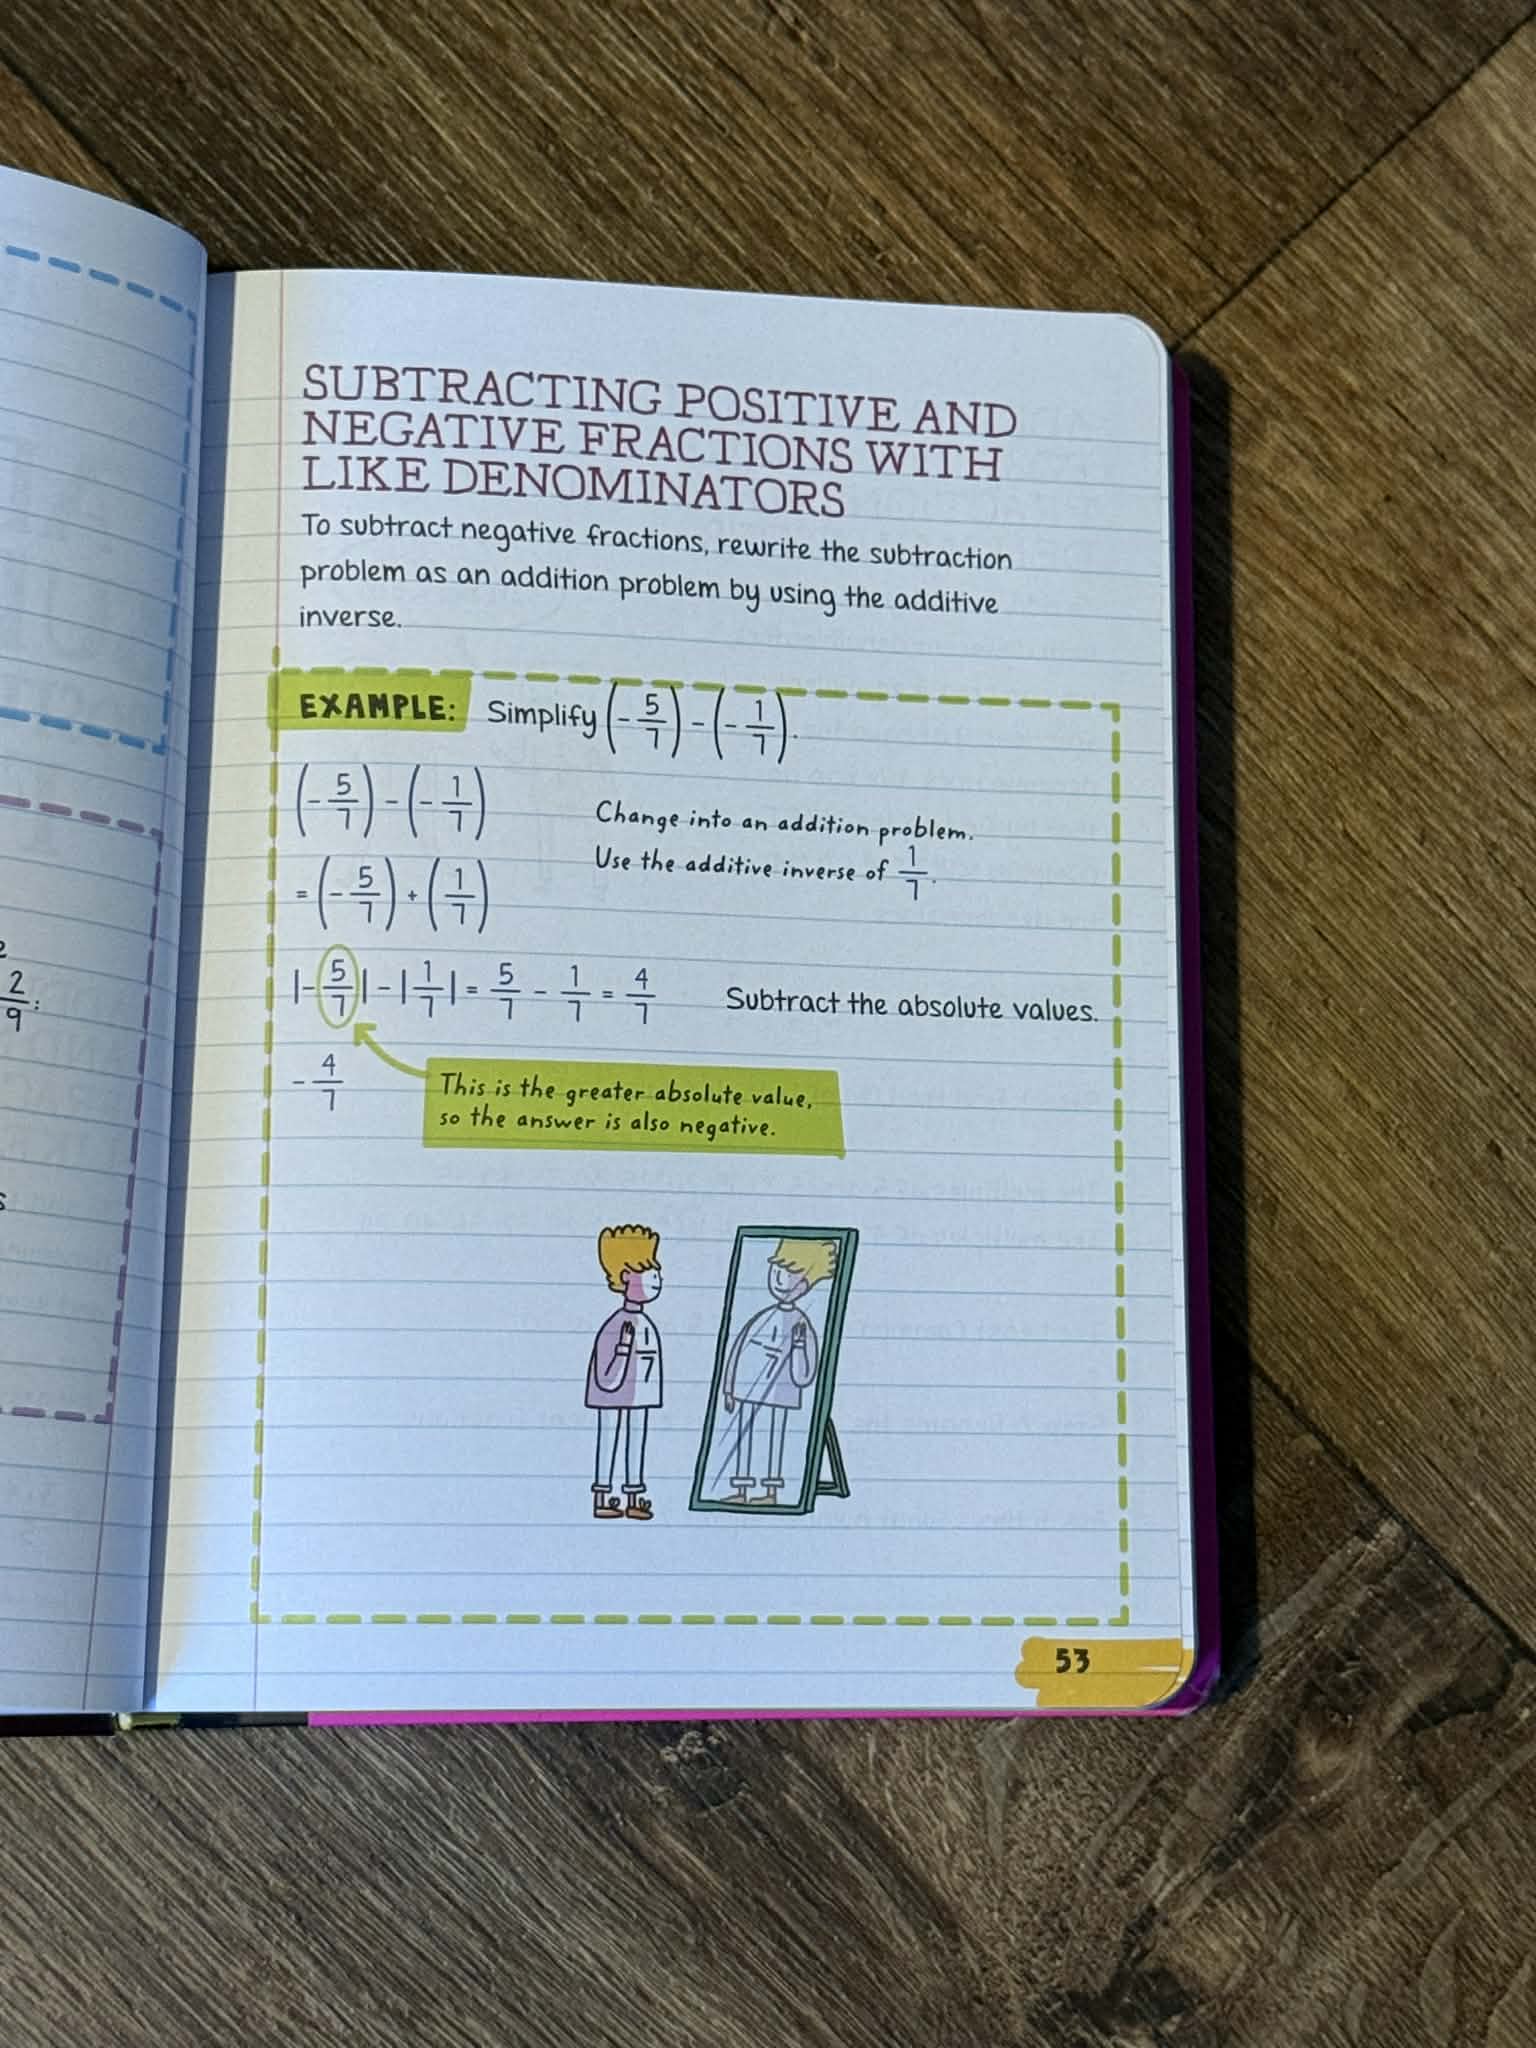 SUBTRACTING POSITIVE AND
NEGATIVE FRACTIONS WITH
LIKE DENOMINATORS
To subtract negative fractions, rewrite the subtraction
problem as an addition problem by using the additive
inverse.
EXAMPLE: Simplify (-5/7) - (-1/7).
(-5/7) - (-1/7)
Change into an addition problem.
Use the additive inverse of 1/7.
= (-5/7) + (1/7)
|-5/7| - |1/7| = 5/7 - 1/7 = 4/7 Subtract the absolute values.
-4/7
This is the greater absolute value,
so the answer is also negative.
1/7
-1/7
53
2/9: